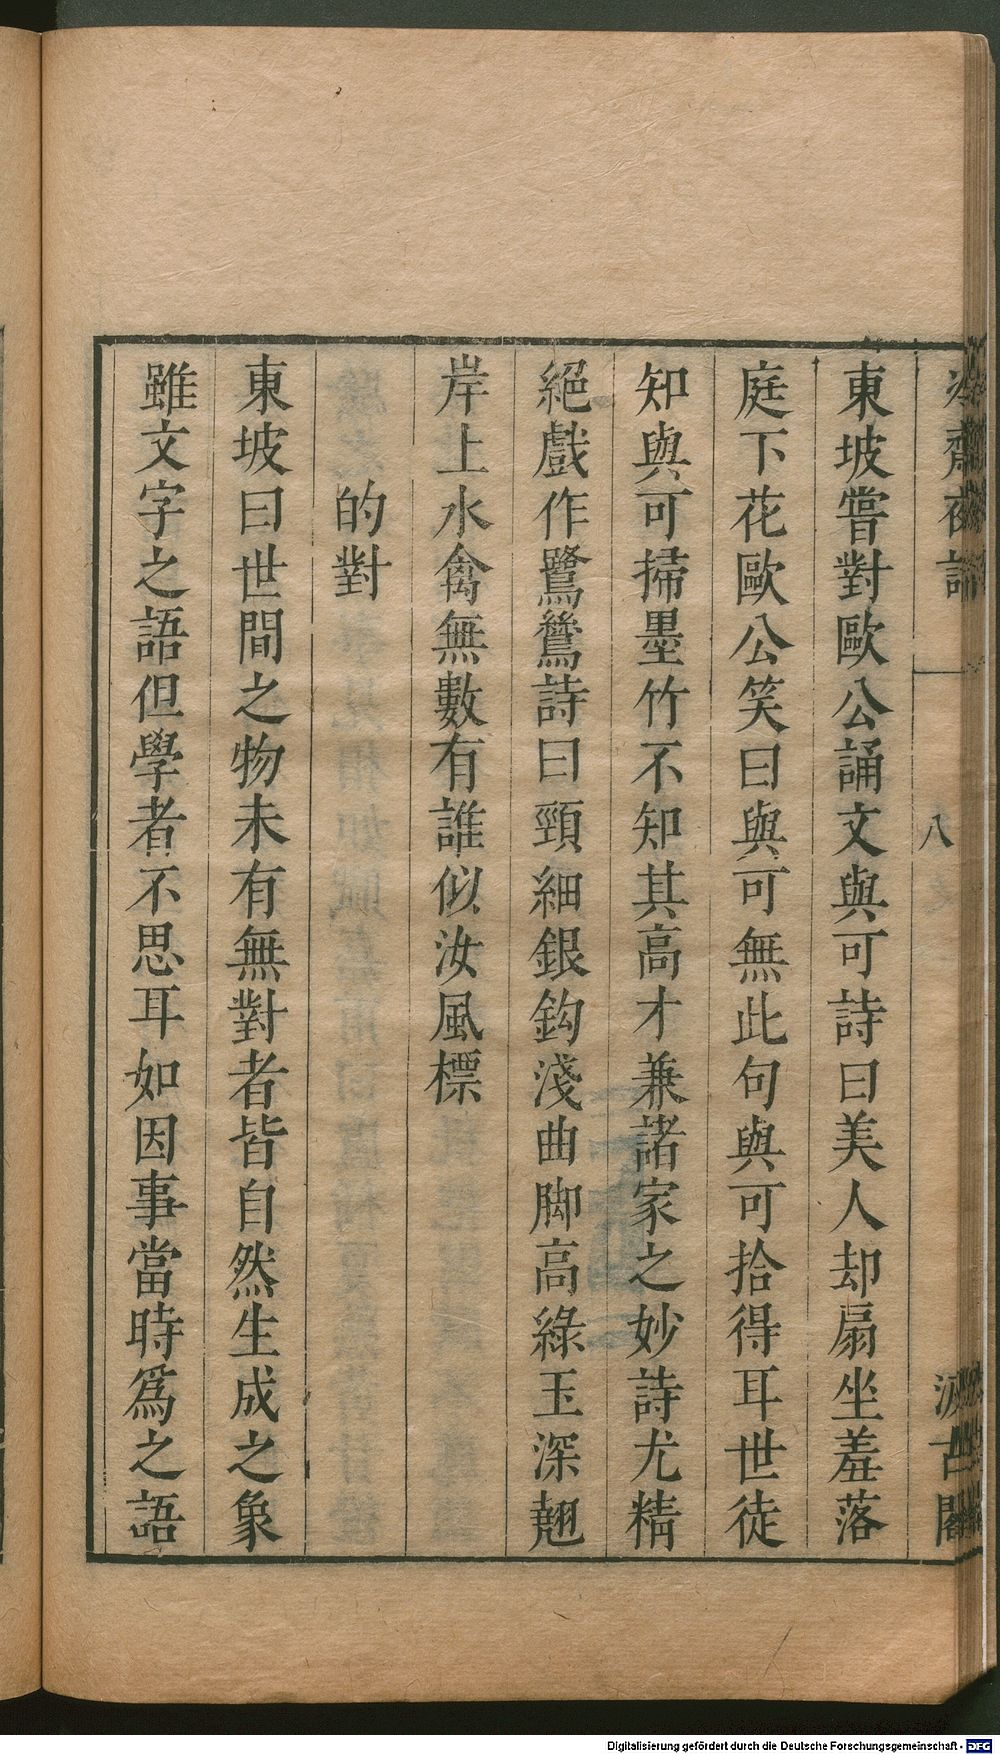 冷齋夜話
八
汲古閣
東坡嘗對歐公誦文與可詩曰美人却扇坐羞落
庭下花歐公笑曰與可無此句與可拾得耳世徒
知與可掃墨竹不知其高才兼諸家之妙詩尤精
絕戲作鷺鷥詩曰頸細銀鈎淺曲脚高綠玉深翹
岸上水禽無數有誰似汝風標
的對
東坡曰世間之物未有無對者皆自然生成之象
雖文字之語但學者不思耳如因事當時爲之語
Digitalisierung gefördert durch die Deutsche Forschungsgemeinschaft - DFG